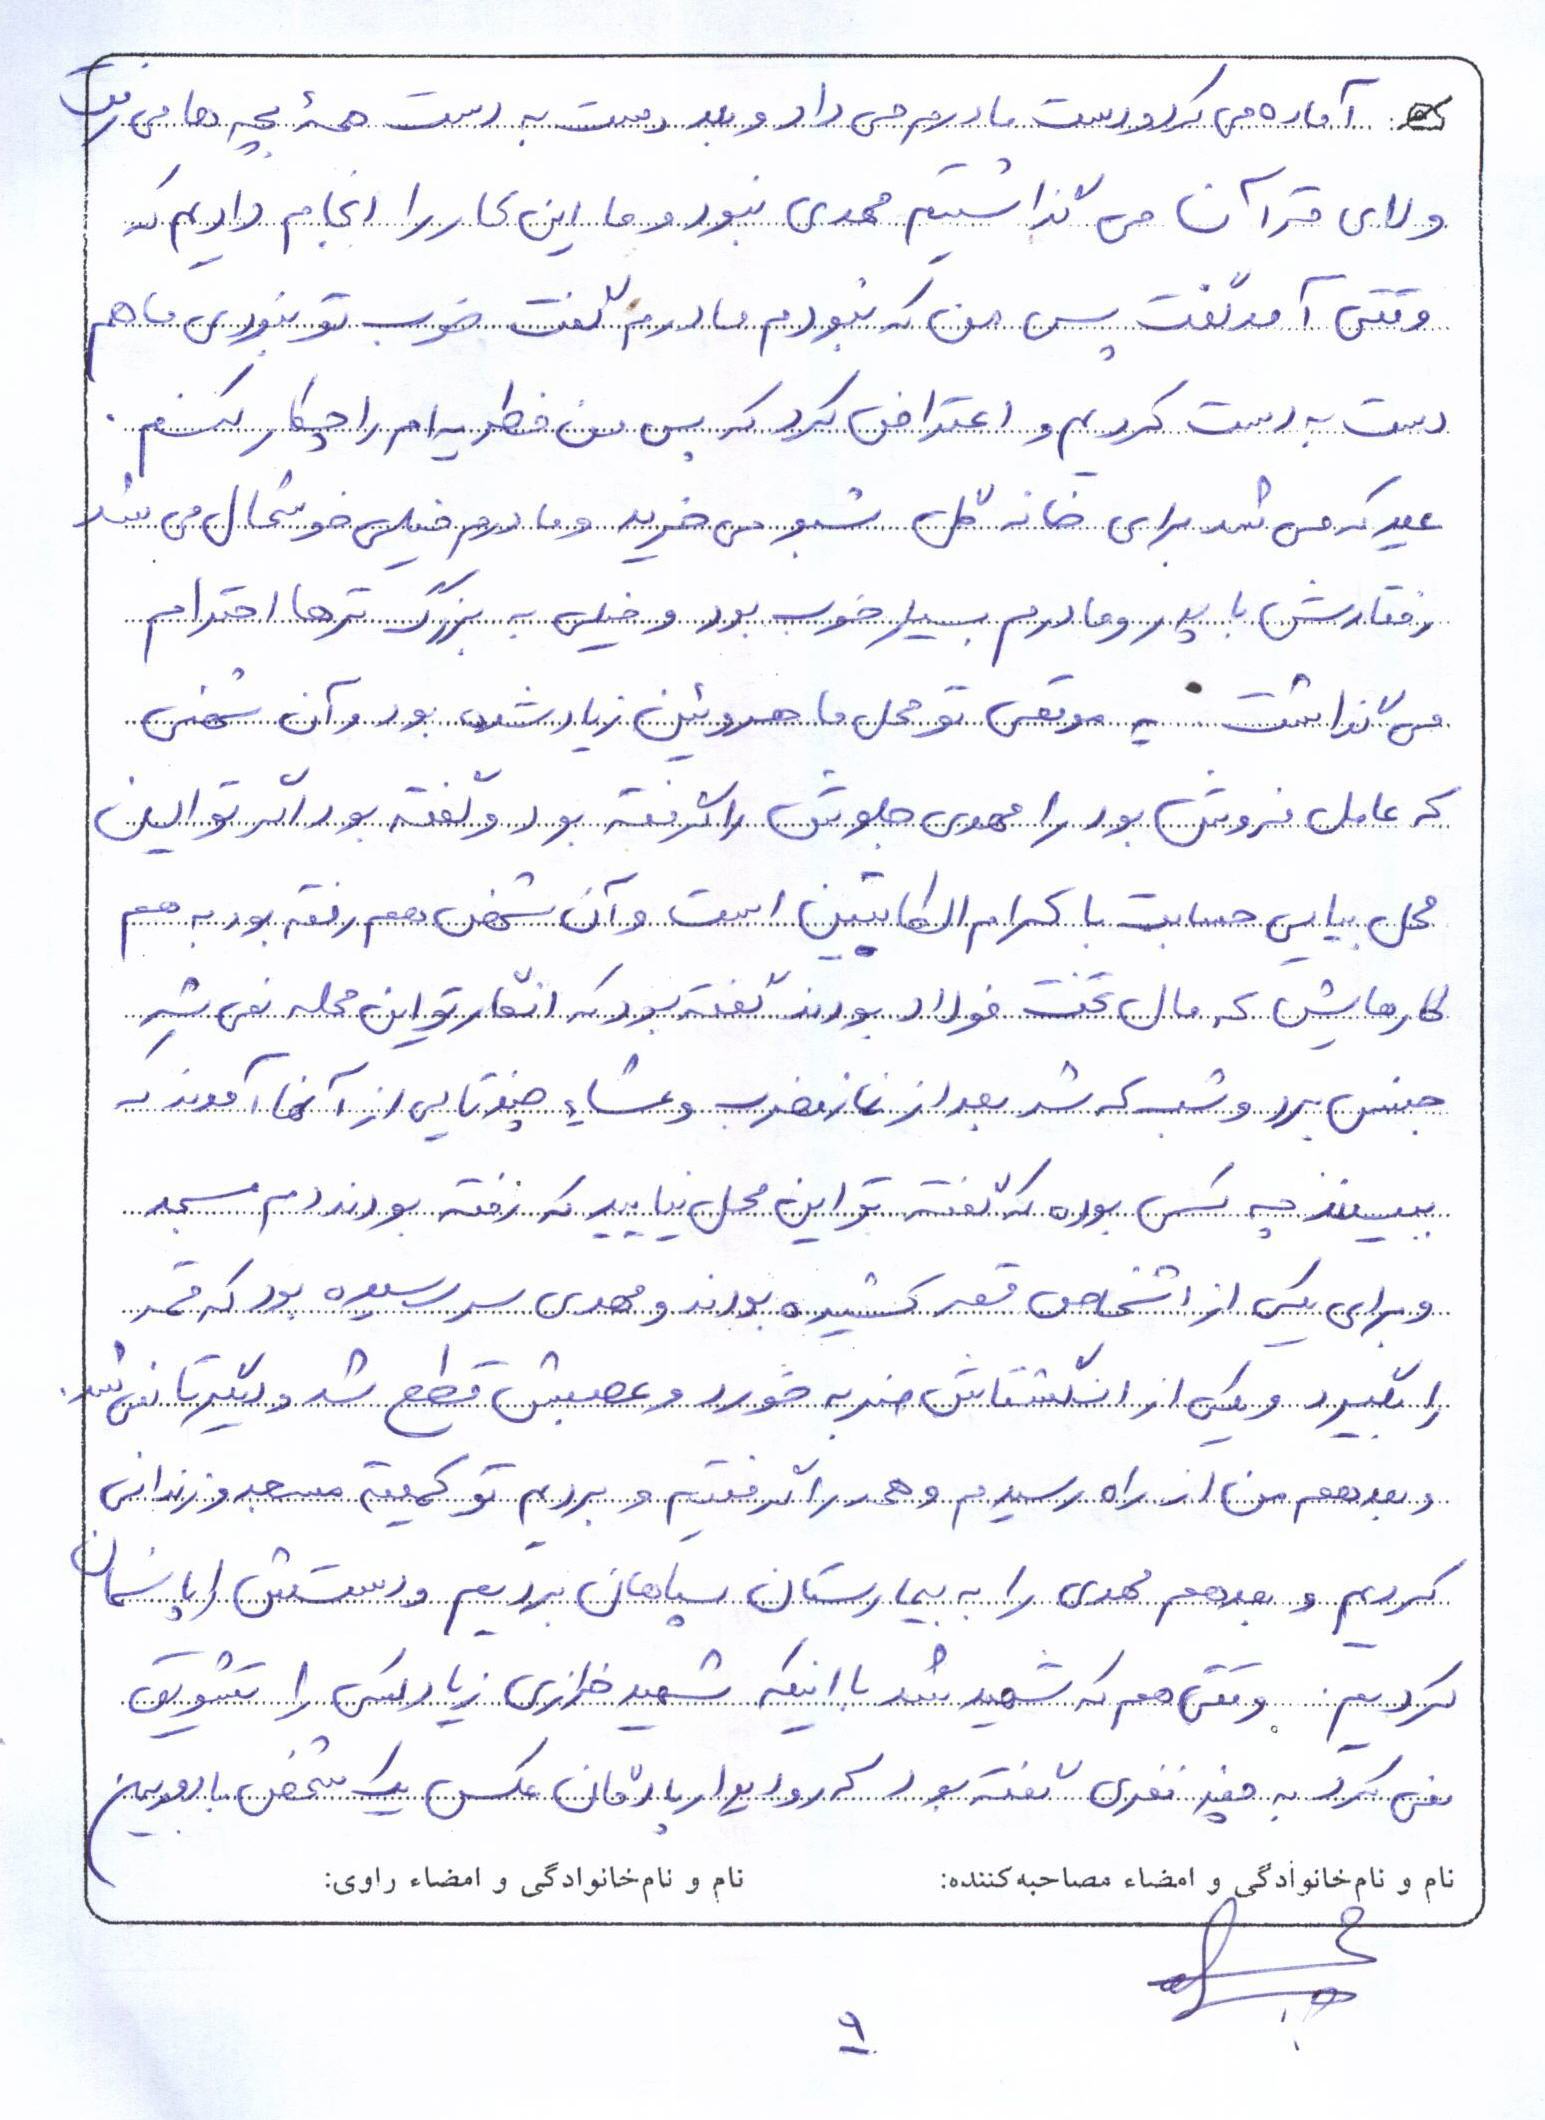 آماده می کرد و دست مادرم می داد و بعد دست به دست همهٔ بچه ها می رفت
و لای قرآن می گذاشتیم مهدی نبود و ما این کار را انجام دادیم که
وقتی آمد گفت پس من که نبودم مادرم گفت خوب تو نبودی ما هم
دست به دست کردیم و اعتراض کرد که پس من فطریه ام را چکار کنم.
عید که می شد برای خانه گل شببو می خرید و مادرم خیلی خوشحال می شد
رفتارش با پدر و مادرم بسیار خوب بود و خیلی به بزرگ ترها احترام
می گذاشت یه موقعی تو محل ما هروئین زیاد شده بود و آن شخصی
که عامل فروش بود را مهدی جلوش را گرفته بود و گفته بود اگر تو این
محل بیایی حسابت با کرام الکاتبین است و آن شخص هم رفته بود به هم
کارهایش که مال تخت فولاد بودند گفته بود که انگار تو این محله نمی شه
جنس برد و شب که شد بعد از نماز مغرب و عشاء چندتایی از آنها آمدند که
ببینند چه کسی بوده که گفته تو این محل نیایید که رفته بودند دم مسجد
و برای یکی از اشخاص قمه کشیده بودند و مهدی سر رسیده بود که قمه
را بگیرد و یکی از انگشتاش ضربه خورد و عصبش قطع شد و دیگر تا نمی شد.
و بعد هم من از راه رسیدم و همه را گرفتیم و بردیم تو کمیته مسجد و زندانی
کردیم و بعد هم مهدی را به بیمارستان سپاهان بردیم و دستش را پانسمان
کردیم. وقتی هم که شهید شد با اینکه شهید خرازی زیاد کسی را تشویق
نمی کرد به چند نفری گفته بود که رو دیوار پادگان عکس یک شخص با دوربین
نام و نام‌خانوادگی و امضاء مصاحبه‌کننده: نام و نام‌خانوادگی و امضاء راوی:
۹